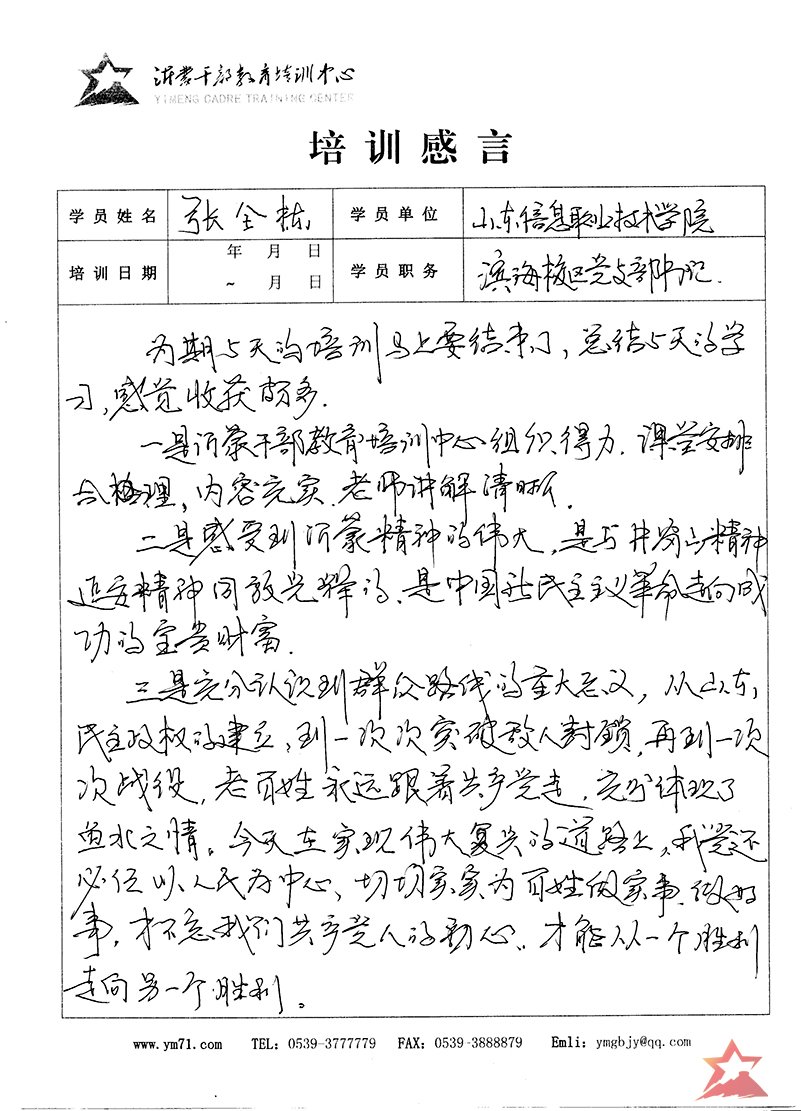 沂蒙干部教育培训中心
YIMENG CADRE TRAINING CENTER
培训感言
学员姓名 张全栋 学员单位 山东信息职业技术学院
培训日期 年 月 日 ~ 月 日 学员职务 滨海校区党支部书记.
为期5天的培训马上要结束了,总结5天的学
习,感觉收获颇多.
一是沂蒙干部教育培训中心组织得力.课堂安排
合理,内容充实.老师讲解清晰.
二是感受到沂蒙精神的伟大,是与井冈山精神
延安精神同放光辉的.是中国新民主主义革命走向成
功的宝贵财富.
三是充分认识到群众路线的重大意义,从山东
民主政权的建立,到一次次突破敌人封锁,再到一次
次战役,老百姓永远跟着共产党走,充分体现了
鱼水之情。今天在实现伟大复兴的道路上,我党还
必须以人民为中心、切切实实为百姓做实事.做好
事,才不忘我们共产党人的初心.才能从一个胜利
走向另一个胜利。
www.ym71.com TEL: 0539-3777779 FAX: 0539-3888879 Emli: ymgbjy@qq.com